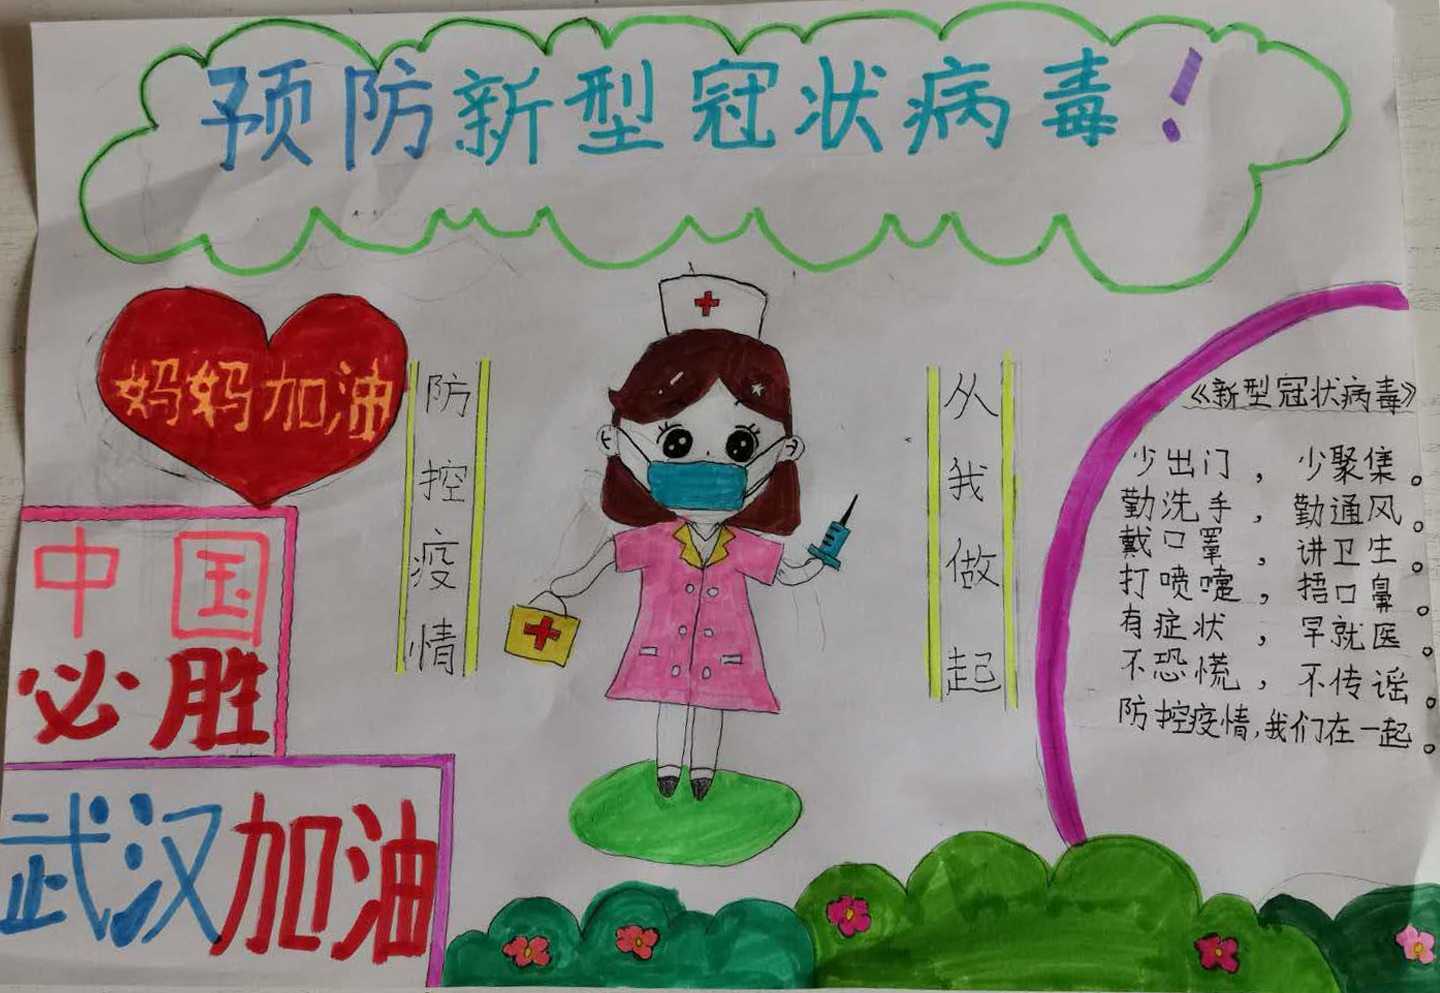 预防新型冠状病毒！
妈妈加油
防控疫情
从我做起
中国
必胜
武汉加油
《新型冠状病毒》
少出门，少聚集。
勤洗手，勤通风。
戴口罩，讲卫生。
打喷嚏，捂口鼻。
有症状，早就医。
不恐慌，不传谣。
防控疫情，我们在一起。